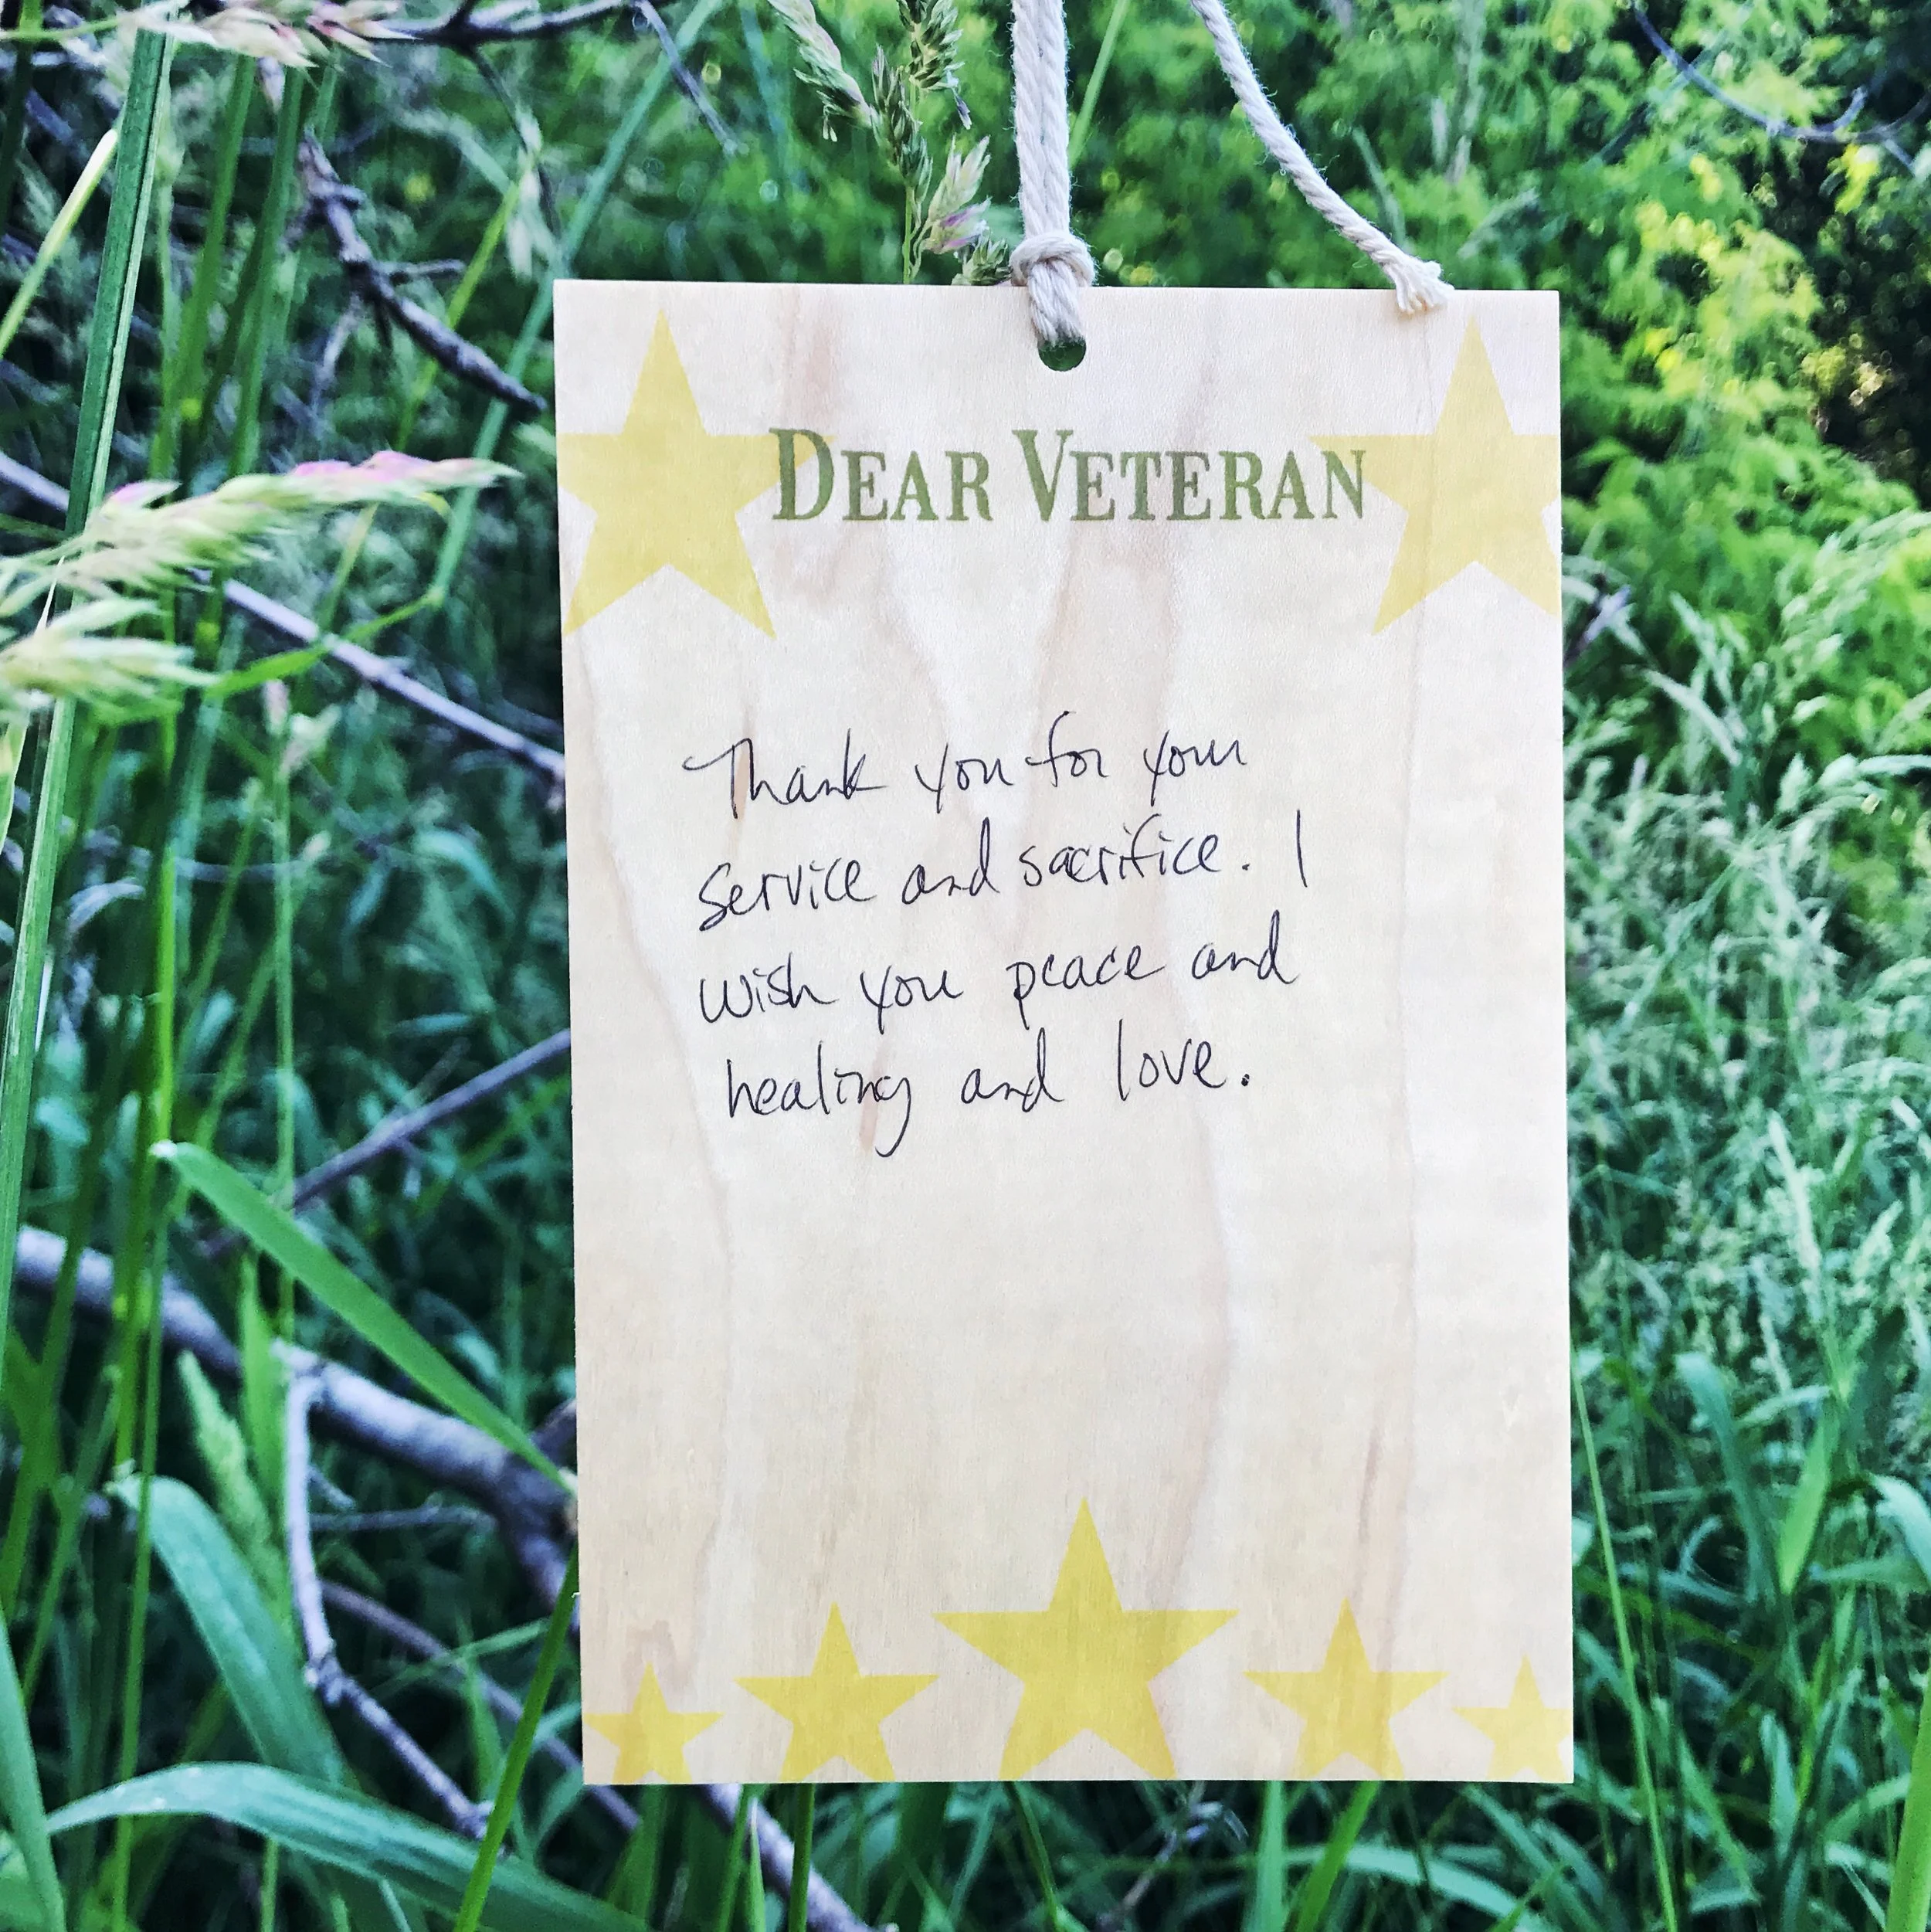 DEAR VETERAN
Thank you for your
service and sacrifice. I
wish you peace and
healing and love.